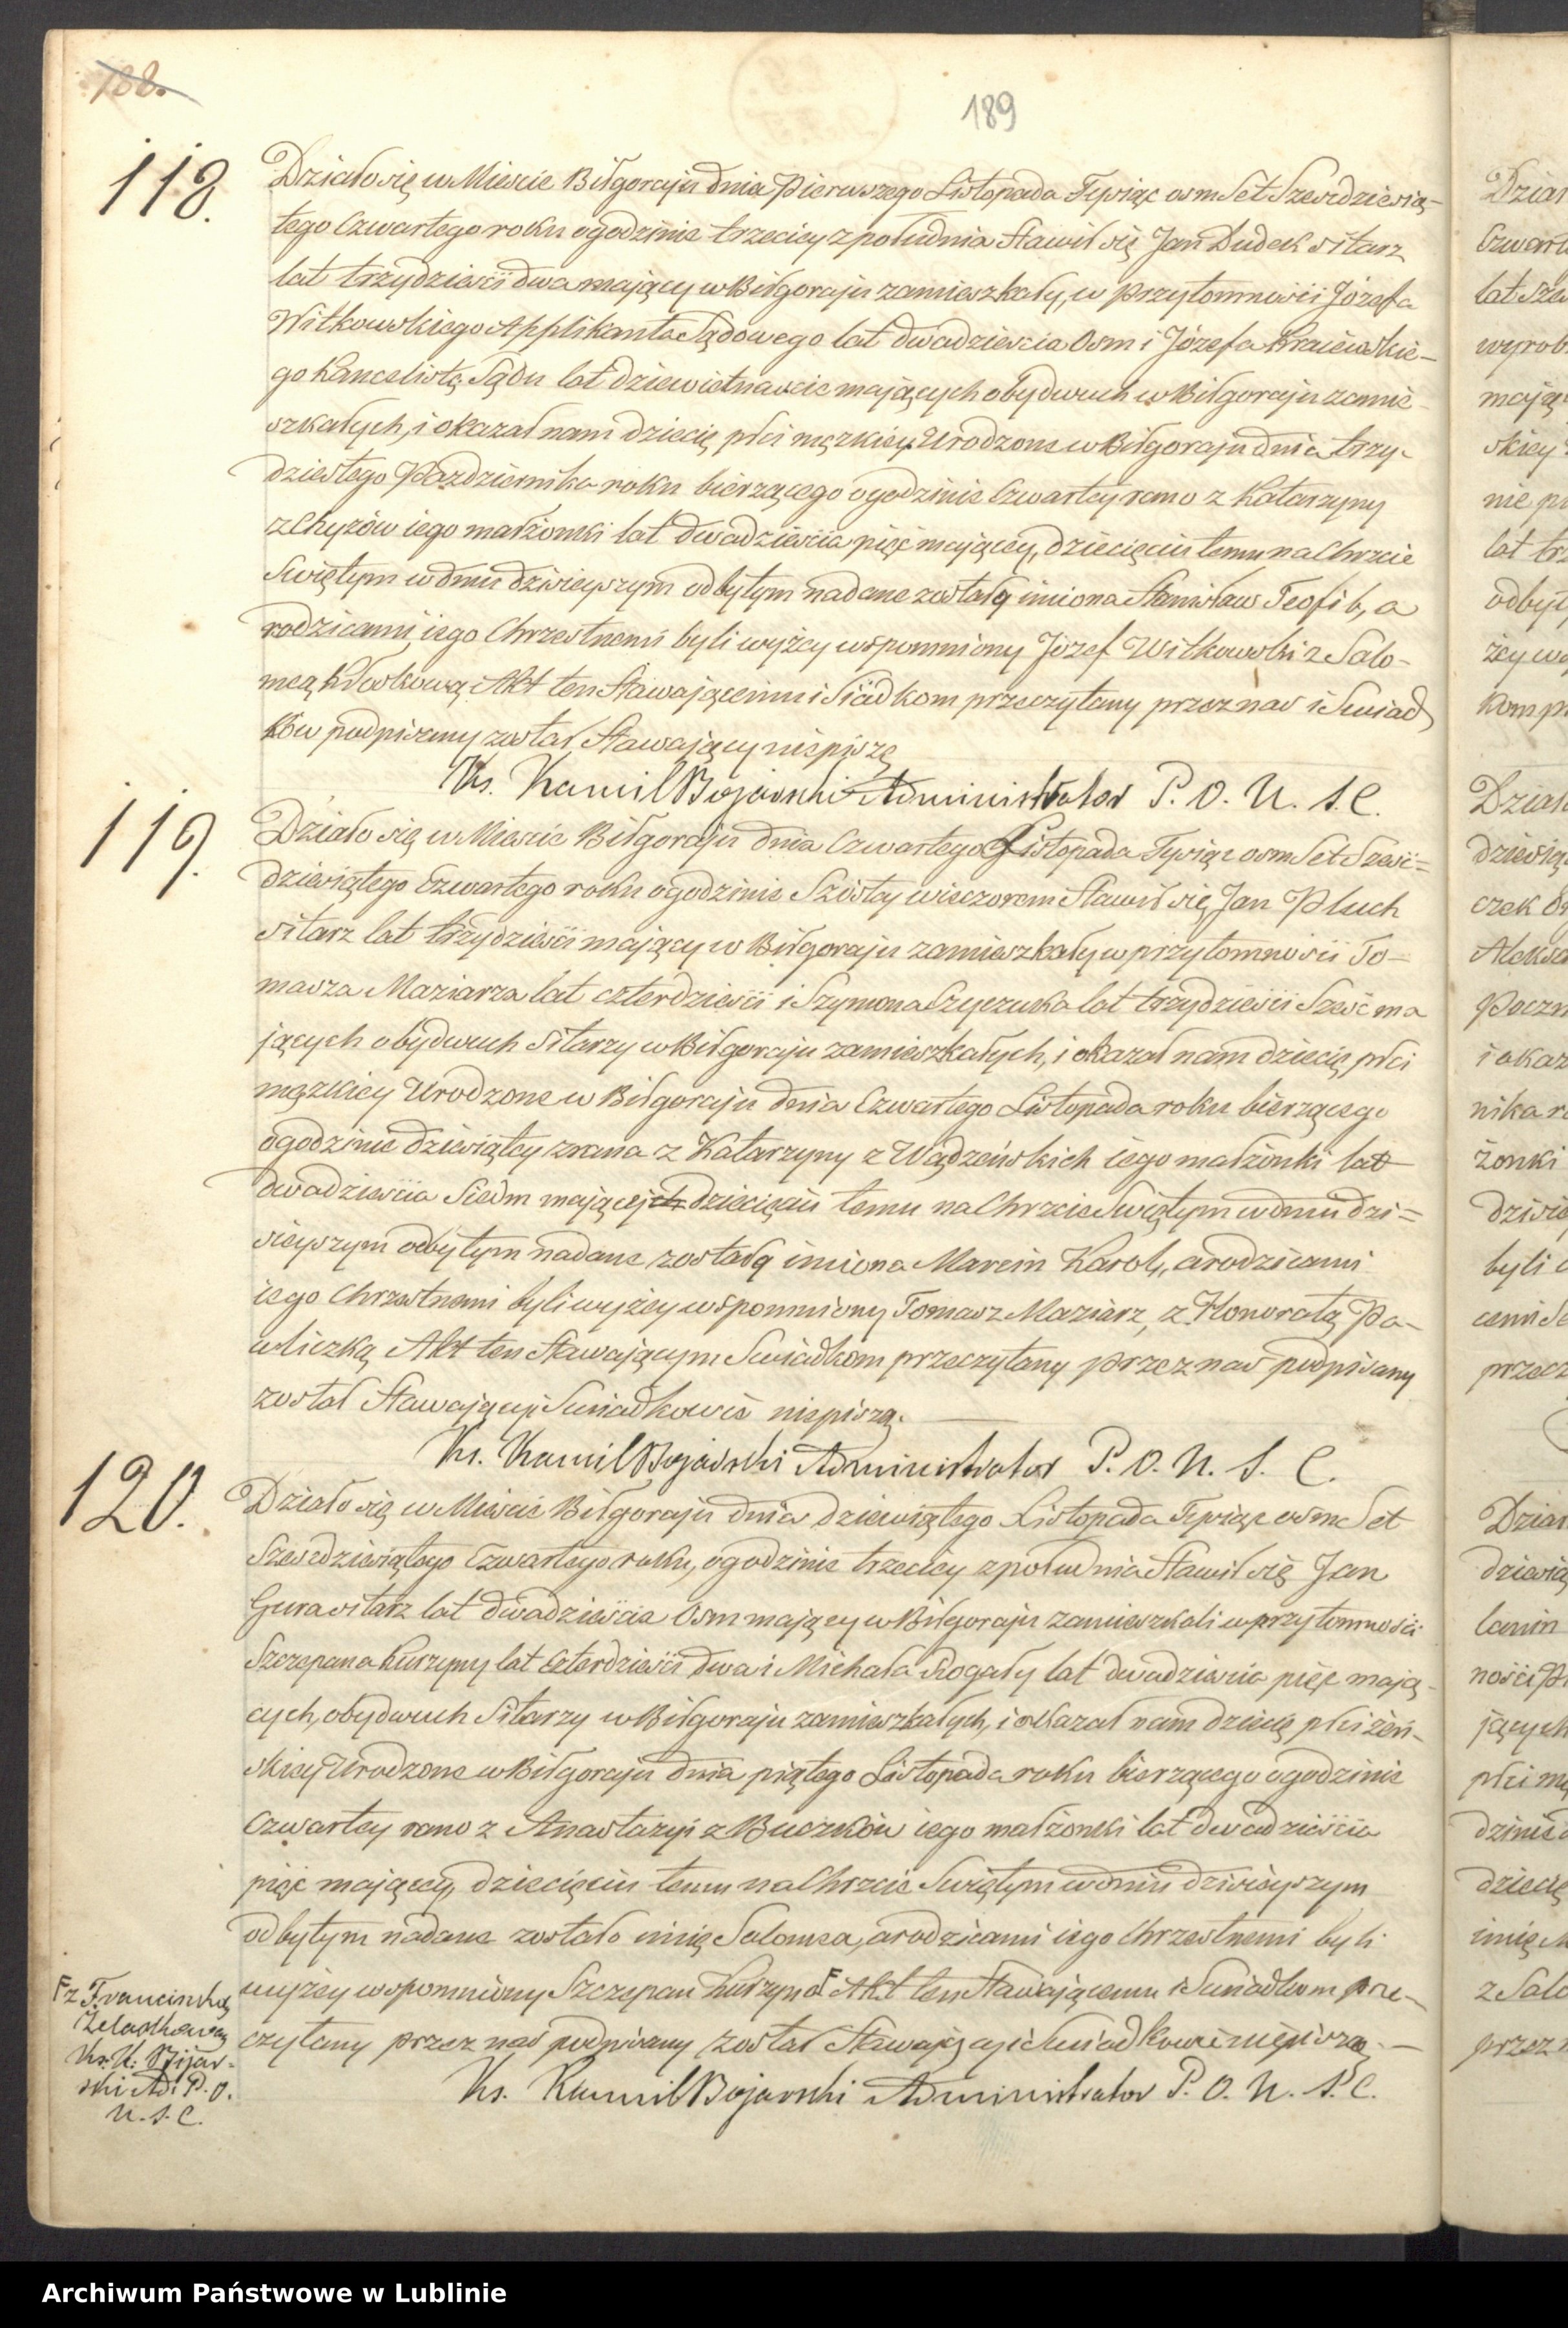 188.
189
118.
Działo się w Miescie Biłgoraju dnia Pierwszego Listopada Tysiąc osm Set Szesćdziesią-
tego Czwartego roku o godzinie trzeciey z południa Stawił się Jan Dudek sitarz
lat trzydzieści dwa mający w Biłgoraju zamieszkały, w przytomności Józefa
Witkowskiego Applikanta Sądowego lat dwadzieścia Osm i Józefa Kraiewskie-
go Kancelistą Sądu lat dziewietnaście mających obydwuch w Biłgoraju zamie-
szkałych, i okazał nam dziecię płci męzkiey Urodzone w Biłgoraju dnia trzy-
dziestego Pazdziernika roku bierzącego o godzinie Czwartey rano z Katarzyny
z Chyzów iego małżonki lat dwadzieścia pięć mającey, dziecięciu temu na Chrzcie
Swiętym w dniu dzisieyszym odbytym nadane zostałą imiona Stanisław Teofil, a
rodzicami iego Chrzestnemi byli wyżey wspomniony Józef Witkowski z Salo-
meą Kłoskową Akt ten Stawającemu i Siádkom przeczytany przez nas i Swiad
ków podpisany został Stawający niepiszę
Ks. Kamil Bojarski Administrator P. O. U. S. C.
119.
Działo się w Miescie Biłgoraju dnia Czwartego Listopada Tysiąc osm Set Sześć=
dziesiątego Czwartego roku o godzinie Szóstey wieczorem Stawił się Jan Pluch
sitarz lat trzydzieści mający w Biłgoraju zamieszkały w przytomności To-
masza Maziarza lat czterdzieści i Szymona Szyczuka lat trzydzieści Sześć ma
jących obydwuch Sitarzy w Biłgoraju zamieszkałych, i okazał nam dziecię płci
męzkiey Urodzone w Biłgoraju dnia Czwartego Listopada roku bierzącego
o godzinie dziewiątey zrana z Katarzyny z Wądzeńskich iego małżonki lat
dwadzieścia Siedm mającej dziecięciu temu na Chrzcie Swiętym w dniu dzi=
sieyszym odbytym nadane zostałą imiona Marcin Karol, a rodzicami
iego Chrzestnemi byli wyżey wspomniony Tomasz Maziarz, z Honoratą Pa-
wliczką Akt ten Stawającym Swiadkom przeczytany przez nas podpisany
został Stawający i Swiadkowie niepiszą.
Ks. Kamil Bojarski Administrator P. O. U. S. C.
120.
Działo się w Mieście Biłgoraju dnia dziewiątego Listopada Tysiąc osm Set
Szesćdziesiątego Czwartego roku, o godzinie trzeciey z południa Stawił się Jan
Gura sitarz lat dwadzieścia Osm mający w Biłgoraju zamieszkali w przytomności
Szczepana Kurzyny lat czterdzieści dwa i Michała Rogały lat dwadzieścia pięć mają-
cych, obydwuch Sitarzy w Biłgoraju zamieszkałych, i okazał nam dziecię płci żeń-
skiey Urodzone w Biłgoraju dnia piątego Listopada roku bierzącego o godzinie
Czwartey rano z Anastazyi z Buczków iego małżonki lat dwadzieścia
pięć mającey, dziecięciu temu na Chrzcie Swiętym w dniu dzisieyszym
odbytym nadane zostało imię Salomea, a rodzicami iego Chrzestnemi byli
wyżey wspomniony Szczepan Kurzyna Akt ten Stawającemu i Swiadkom prze-
czytany przez nas podpisany został Stawający i Swiadkowie niepiszą.
Ks. Kamil Bojarski Administrator P. O. U. S. C.
z Franciszką
Żeladkową
Ks. K. Bojar-
ski Ad. P. O.
U. S. C.
Archiwum Państwowe w Lublinie